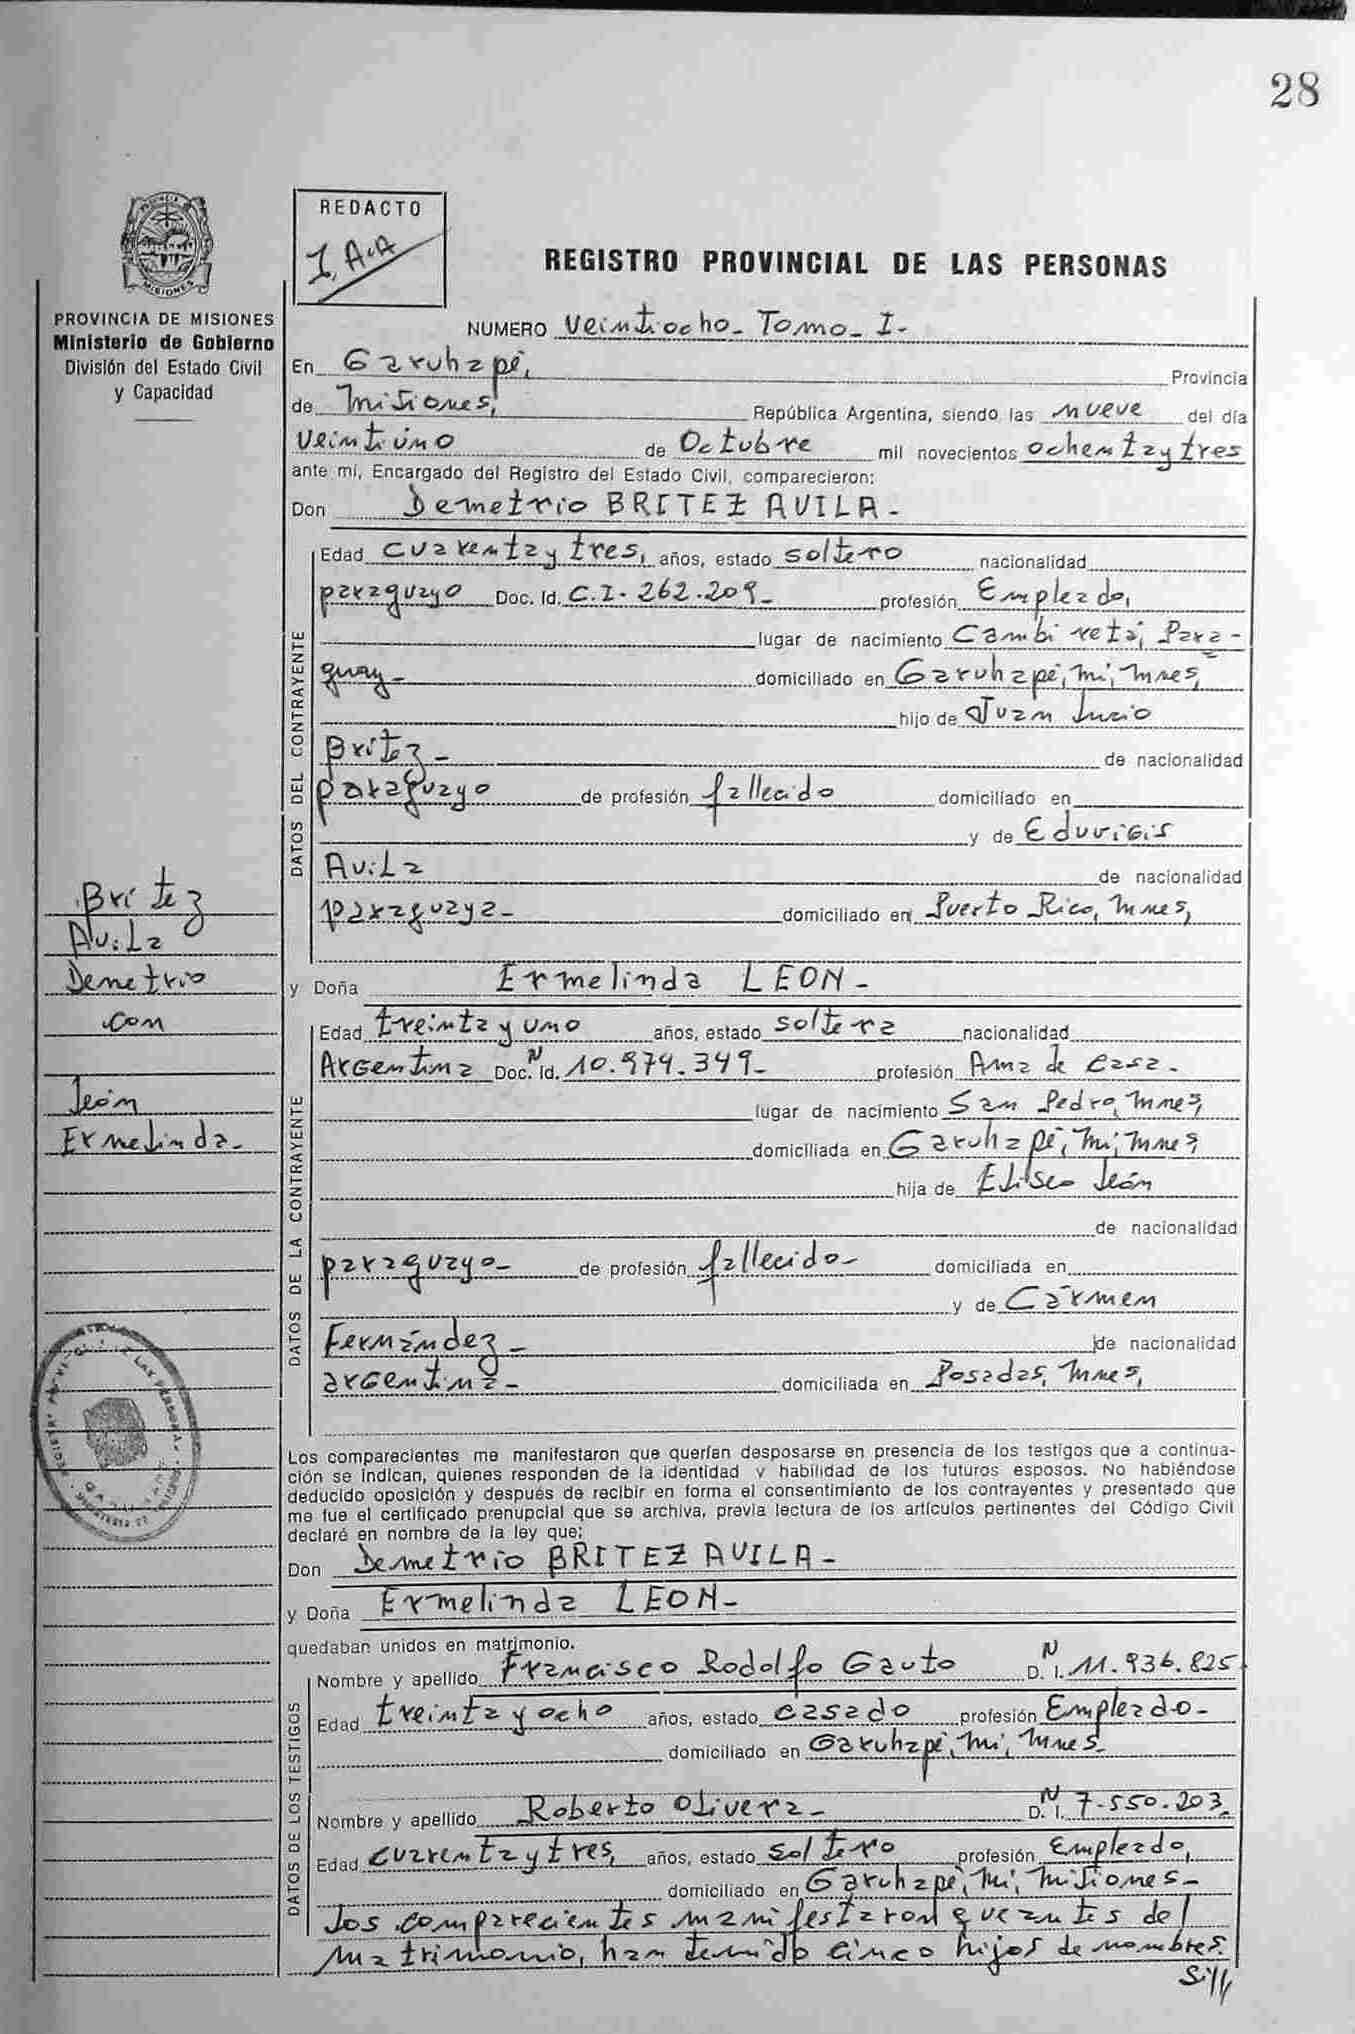 28
PROVINCIA DE MISIONES
Ministerio de Gobierno
División del Estado Civil
y Capacidad
REDACTO
I.A.A
REGISTRO PROVINCIAL DE LAS PERSONAS
NUMERO Veintiocho_ Tomo_ I-
En Garuhapé, Provincia
de Misiones, República Argentina, siendo las nueve del día
veintiúno de Octubre mil novecientos ochenta y tres
ante mí, Encargado del Registro del Estado Civil, comparecieron:
Don Demetrio BRITEZ AVILA-
DATOS DEL CONTRAYENTE
Edad cuarenta y tres, años, estado soltero nacionalidad
paraguayo Doc. Id. C.I. 262.209- profesión Empleado,
lugar de nacimiento Cambiretá, Para-
guay- domiciliado en Garuhapé, mi, mnes,
hijo de Juan Lucio
Britez- de nacionalidad
paraguayo de profesión fallecido domiciliado en
y de Eduvigis
Avila de nacionalidad
paraguaya- domiciliado en Puerto Rico, mnes,
y Doña Ermelinda LEON-
DATOS DE LA CONTRAYENTE
Edad treinta y uno años, estado soltera nacionalidad
Argentina Doc. N Id. 10.974.349- profesión Ama de casa-
lugar de nacimiento San Pedro, mnes,
domiciliada en Garuhapé, mi, mnes,
hija de Eliseo León
de nacionalidad
paraguayo- de profesión fallecido- domiciliada en
y de Cármen
Fernández- de nacionalidad
argentina- domiciliada en Posadas, mnes,
Britez
Avila
Demetrio
con
León
Ermelinda-
Los comparecientes me manifestaron que querían desposarse en presencia de los testigos que a continua-
ción se indican, quienes responden de la identidad y habilidad de los futuros esposos. No habiéndose
deducido oposición y después de recibir en forma el consentimiento de los contrayentes y presentado que
me fue el certificado prenupcial que se archiva, previa lectura de los artículos pertinentes del Código Civil
declaré en nombre de la ley que:
Don Demetrio BRITEZ AVILA-
y Doña Ermelinda LEON-
quedaban unidos en matrimonio.
DATOS DE LOS TESTIGOS
Nombre y apellido Francisco Rodolfo Gauto D. N I. 11.936.825
Edad treinta y ocho años, estado casado profesión Empleado-
domiciliado en Garuhapé, mi, mnes-
Nombre y apellido Roberto Olivera- D. N I. 7.550.203
Edad cuarenta y tres, años, estado soltero profesión Empleado,
domiciliado en Garuhapé, mi, misiones-
Los comparecientes manifestaron que antes del
matrimonio, han tenido cinco hijos de nombres: